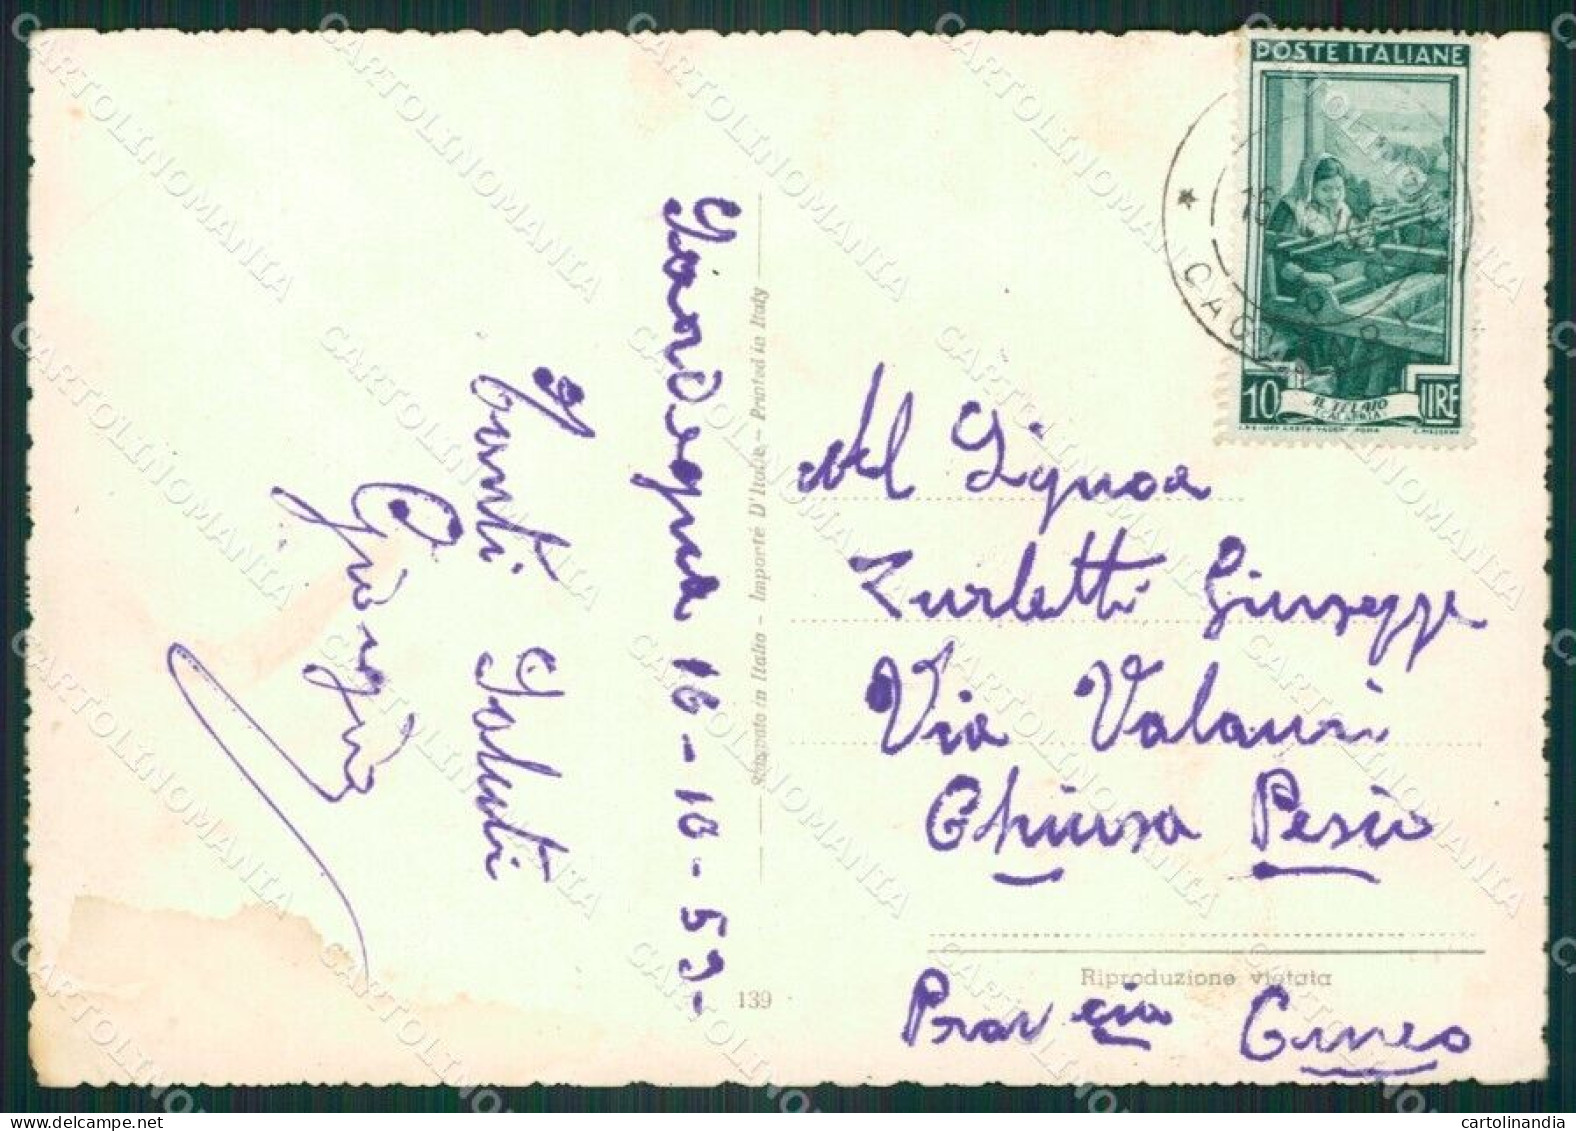 POSTE ITALIANE
10 LIRE
IL TELAIO
Giovedegna 16-10-59-
Tanti Saluti
Giorgio
Stampato in Italia - Importé D'Italie - Printed in Italy
139
Al Signor
Turletti Giuseppe
Via Valauri
Chiusa Pesio
Riproduzione vietata
Provincia Cuneo
CARTOLINOMANIA
cartolinandia